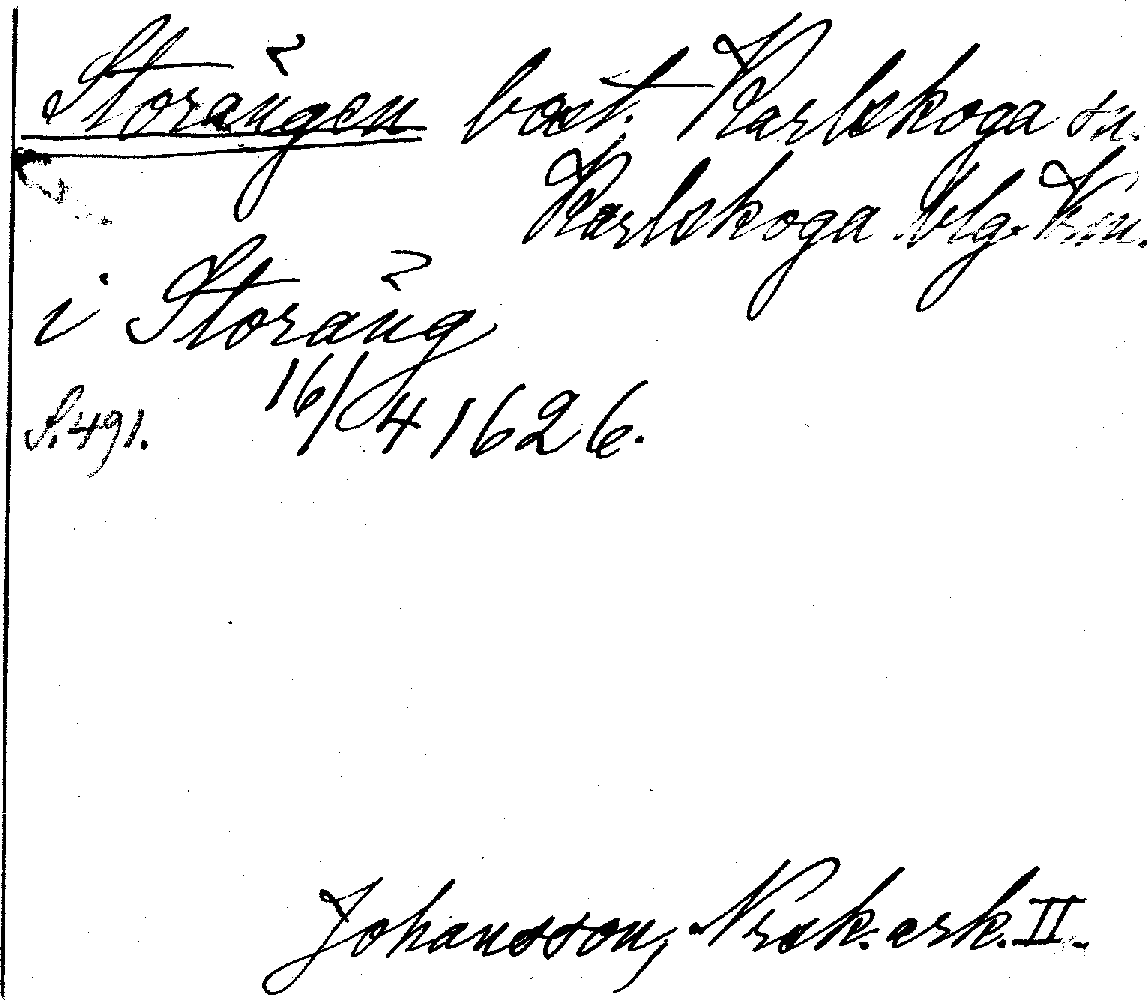 Storängen bost. Karlskoga sn.
Karlskoga blg. Vrm.
i Storäng
S. 491. 16/4 1626.
Johansson, Nrsk. ark. II.